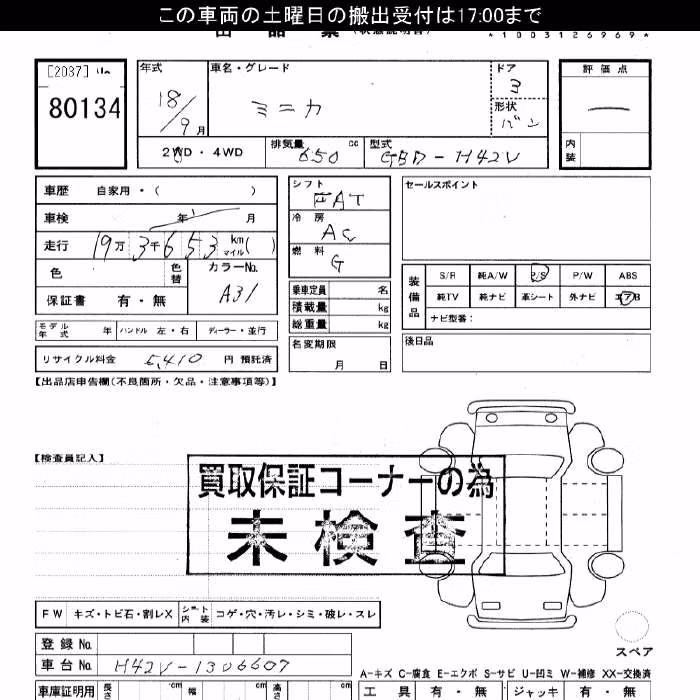 この車両の土曜日の搬出受付は17:00まで
*1003126969*
[2037]
80134
年式
18/9月
車名・グレード
ミニカ
ドア
3
形状
バン
評価点
内装
2WD・4WD
排気量
650 cc
型式
GBD-H42V
車歴 自家用・( )
車検 年 月
走行 19万3千653 km マイル( )
色
色替
カラーNo.
A31
保証書 有・無
モデル年式 年 ハンドル 左・右 ディーラー・並行
リサイクル料金 5,410 円 預託済
シフト
FAT
冷房
AC
燃料
G
乗車定員 名
積載量 kg
総重量 kg
名変期限
月 日
セールスポイント
装備品
S/R 純A/W P/S P/W ABS
純TV 純ナビ 革シート 外ナビ エアB
ナビ型番:
後日品
【出品店申告欄(不良箇所・欠品・注意事項等)】
【検査員記入】
買取保証コーナーの為
未検査
FW キズ・トビ石・割レX シート内装 コゲ・穴・汚レ・シミ・破レ・スレ
登録No.
車台No. H42V-1306607
スペア
A-キズ C-腐食 E-エクボ S-サビ U-凹ミ W-補修 XX-交換済
車庫証明用 長さ cm 幅 cm 高さ cm
工具 有・無 ジャッキ 有・無